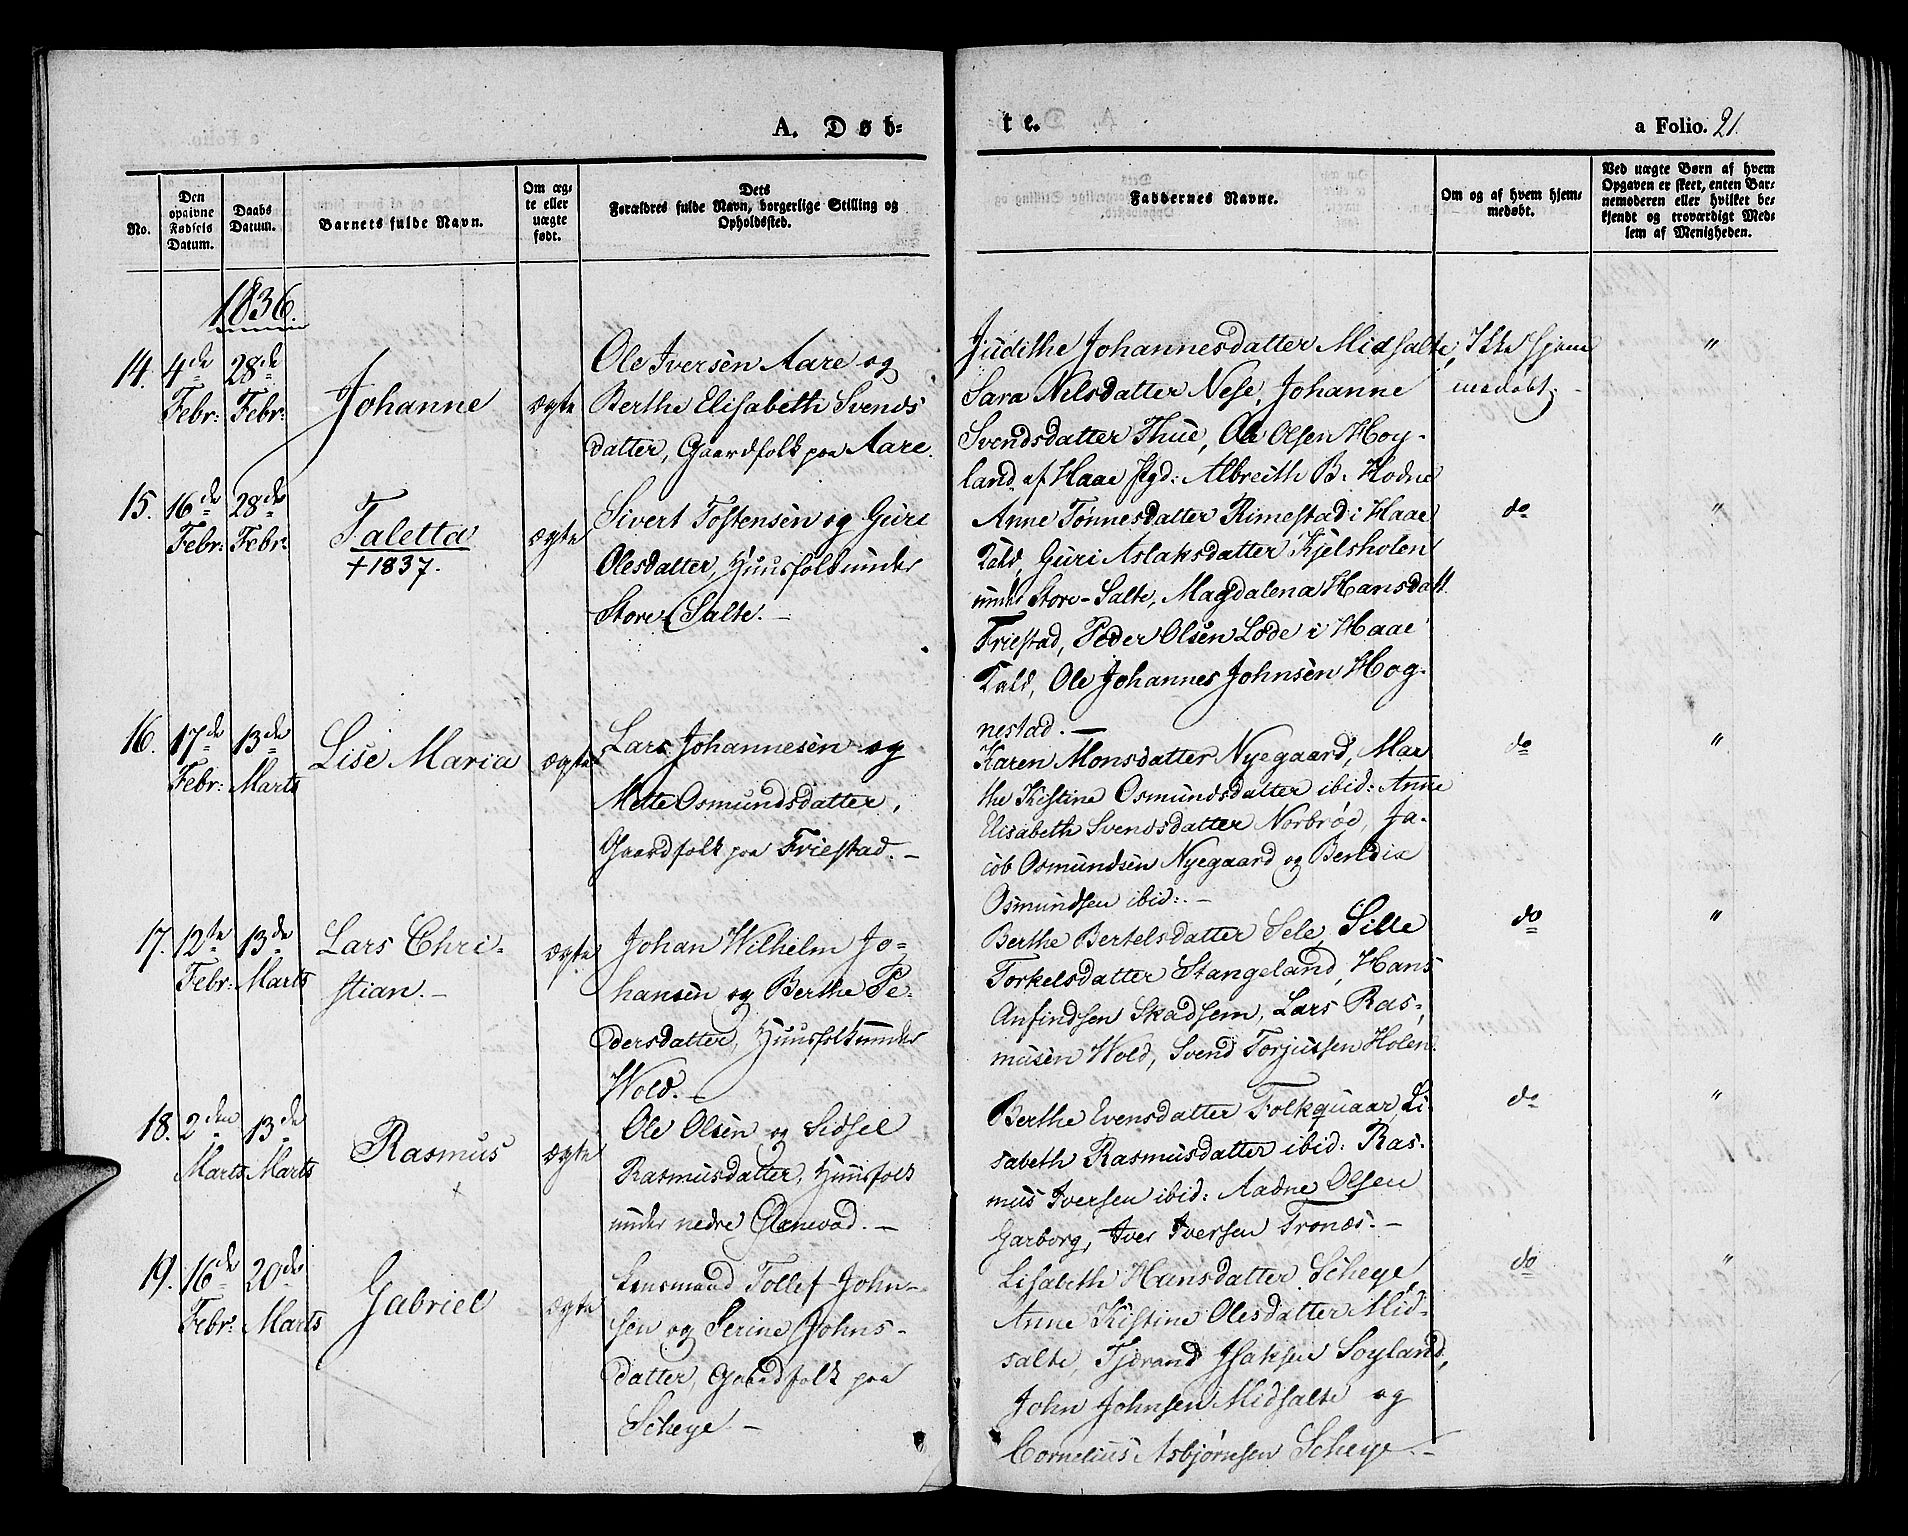 A. Døb-
te.
a Folio. 21.
No.
Den opgivne Fødsels Datum.
Daabs Datum.
Barnets fulde Navn.
Om ægte eller uægte født.
Dets Forældres fulde Navn, borgerlige Stilling og Opholdssted.
Faddernes Navne.
Om og af hvem hjemmedøbt.
Ved uægte Børn af hvem Opgaven er skeet, enten Barnemoderen eller hvilket bekjendt og troværdigt Medlem af Menigheden.
1836.
14. 4de Febr: 28de Febr: Johanne ægte
Ole Iversen Aare og
Berthe Elisabeth Svends
datter, Gaardfolk paa Aare.
Judithe Johannesdatter Midsalte,
Sara Nilsdatter Nese, Johanne
Svendsdatter Thue, Ole Olsen Hoy-
land af Haae Pgd: Albreith B. Hodne
Ikke hjem
medøbt. "
15. 16de Febr: 28de Febr: Taletta
+ 1837.
ægte
Sivert Tostensen og Guri
Olesdatter, Huusfolk under
Store Salte. -
Anne Tönnesdatter Rimestad i Haae
Kald, Guri Aslaksdatter Kjelsholen
under Store-Salte, Magdalena Hansdatt
Friestad, Peder Olsen Lode i Haae
Kald, Ole Johannes Johnsen Hog-
nestad. -
do "
16. 17de Febr: 13de Marts Lise Maria ægte
Lars Johannesen og
Mette Osmundsdatter,
Gaardfolk paa Friestad. -
Karen Monsdatter Nyegaard, Mar
the Kistine Osmundsdatter ibid: Anne
Elisabeth Svendsdatter Norbrød, Ja-
cob Osmundsen Nyegaard og Bendix
Osmundsen ibid: -
do "
17. 12te Febr: 13de Marts Lars Chri-
stian. -
ægte
Johan Wilhelm Jo-
hansen og Berthe Pe-
dersdatter, Huusfolk under
Wold. -
Berthe Bertelsdatter Sele, Sille
Torkelsdatter Stangeland, Hans
Anfindsen Skadsem, Lars Ras-
musen Wold, Svend Torjussen Holen.
do "
18. 2den Marts 13de Marts Rasmus
+
ægte
Ole Olsen og Sidsel
Rasmusdatter, Huusfolk
under nedre Qvernevad. -
Berthe Evensdatter Folkquaar, Li-
sabeth Rasmusdatter ibid: Ras-
mus Iversen ibid: Aadne Olsen
Garborg, Iver Iversen Tronæs. -
do "
19. 16de Febr: 20de Marts Gabriel ægte
Lensmand Tollef John-
sen og Serine Johns-
datter, Gaardfolk paa
Scheye -
Lisabeth Hansdatter Scheye,
Anne Kistine Olesdatter Mid-
salte, Tjerand Isaksen Soyland,
John Johnsen Midsalte og
Cornelius Asbjørnsen Scheye. -
do "